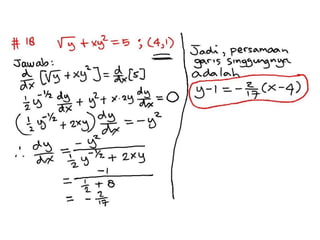 # 18 √y + xy² = 5 ; (4,1)
Jawab:
d/dx [√y + xy²] = d/dx [5]
½ y^(-1/2) dy/dx + y² + x·2y dy/dx = 0
(½ y^(-1/2) + 2xy) dy/dx = -y²
∴ dy/dx = -y² / (½ y^(-1/2) + 2xy)
= -1 / (½ + 8)
= -2/17
Jadi, persamaan
garis singgungnya
adalah
y-1 = -2/17 (x-4)